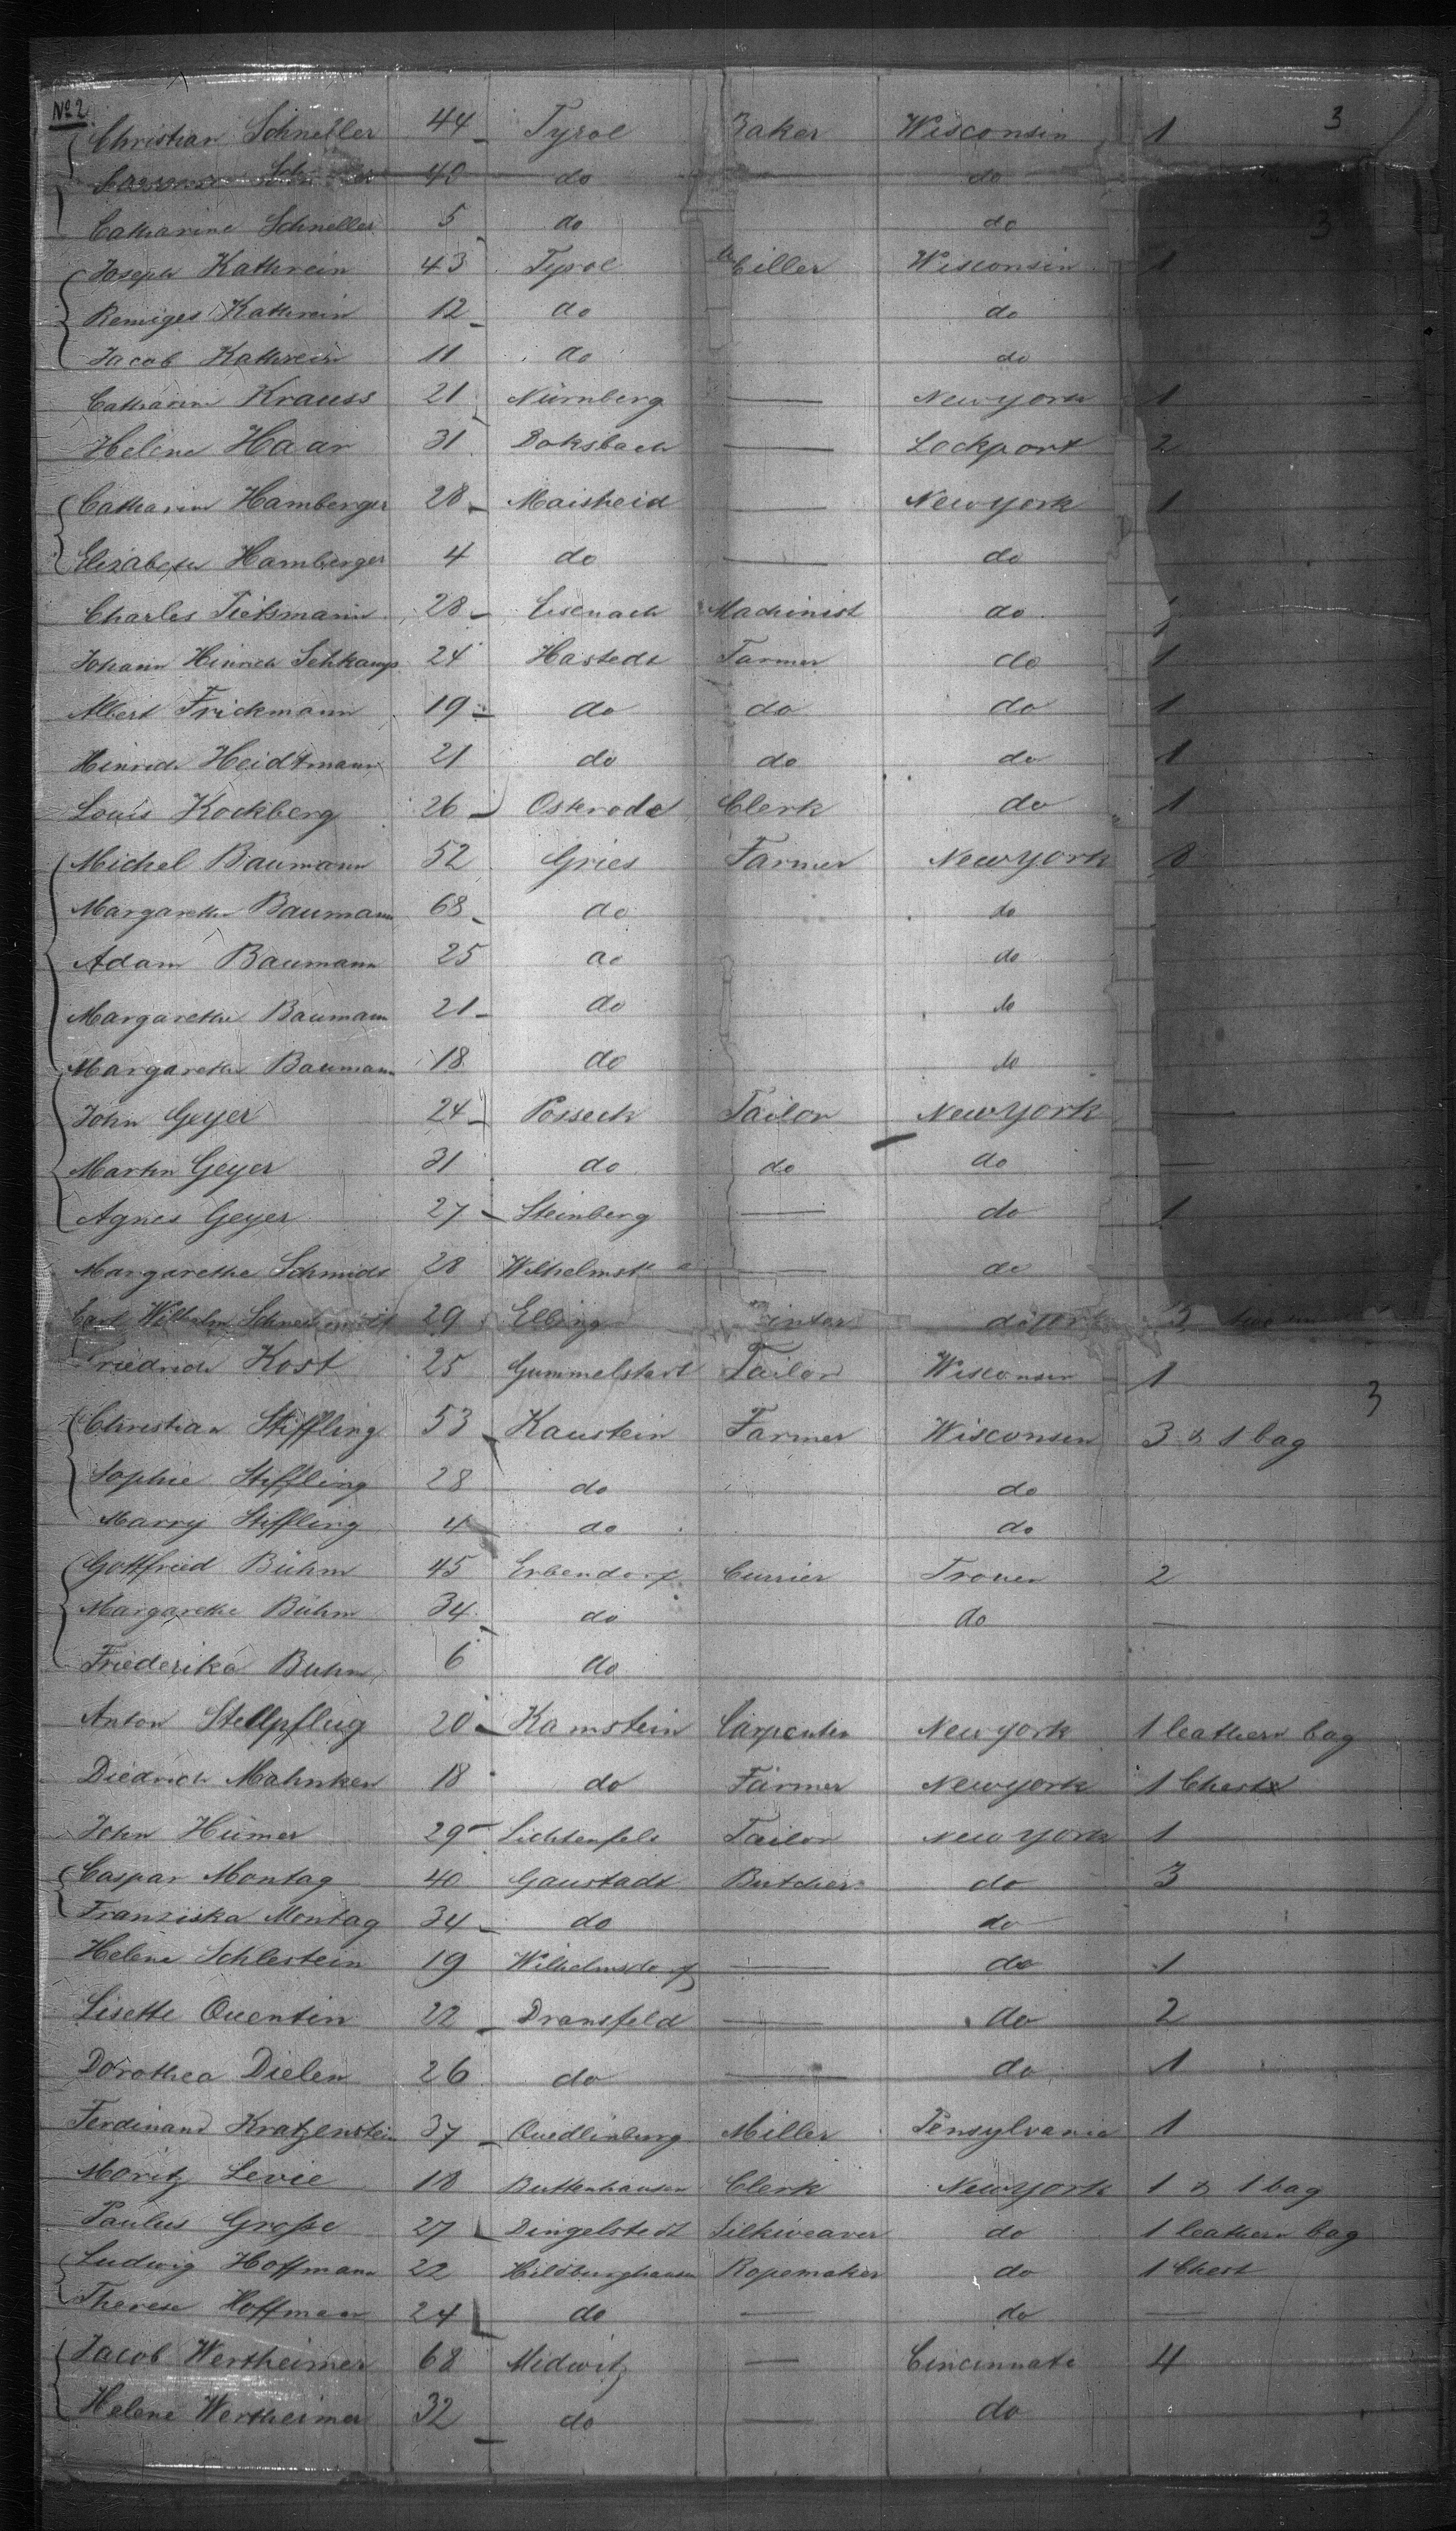 No 2
Christian Schneller 44 Tyrol Baker Wisconsin 1 3
40 do do
Catharine Schneller 5 do do 3
Joseph Kathrein 43 Tyrol Wisconsin 1
Remiges Kathrein 12 do do
Jacob Kathrein 11 do do
Catharine Krauss 21 Nürnberg — New York 1
Helene Haar 31 — Lockport 2
Catharine Hamberger 28 Maisheid — New York 1
Elisabeth Hamberger 4 do — do
Charles Tietsmann 28 Eisenach Machinist do 1
Johann Hinrich Sehkamp 24 Hastedt Farmer do 1
Albert Frickmann 19 do do do 1
Hinrich Heidtmann 21 do do do 1
Louis Kockberg 26 Osterode Clerk do 1
Michel Baumann 52 Gries Farmer New York 8
Margarethe Baumann 68 do do
Adam Baumann 25 do do
Margarethe Baumann 21 do do
Margarethe Baumann 18 do do
John Geyer 24 Posseck Tailor New York —
Martin Geyer 31 do do do —
Agnes Geyer 27 Steinberg — do 1
Margarethe Schmidt 28 — do
Carl Wilhelm 29 Elbing
Friedrich Kost 25 Gummelstadt Tailor Wisconsin 1
3
Christian Stiffling 53 Kaustein Farmer Wisconsin 3 & 1 bag
Sophie Stiffling 28 do do
Marry Stiffling 4 do do
Gottfried Bühm 45 Erbendorf Currier 2
Margarethe Bühm 34 do do —
Friederika Buhm 6 do
Anton Stellpflug 20 Kamstein Carpenter New York 1 leathern bag
Diedrich Mahnken 18 do Farmer New York 1 Chest
John Hümer 29 Lichtenfels Tailor New York 1
Caspar Montag 40 Gaustadt Butcher do 3
Franziska Montag 34 do do
Helene Schlestein 19 Wilhelmsdorf — do 1
Lisette Quentin 22 Dransfeld — do 2
Dorothea Dielen 26 do — do 1
Ferdinand Kratzenstein 37 Quedlinburg Miller Pensylvania 1
Moritz Levie 18 Buttenhausen Clerk New York 1 & 1 bag
Paulus Große 27 Dingelstedt Silkweaver do 1 leathern bag
Ludwig Hoffmann 22 Hildburghausen Ropemaker do 1 Chest
Therese Hoffman 24 do — do —
Jacob Wertheimer 68 Midwitz — Cincinnati 4
Helene Wertheimer 32 do — do